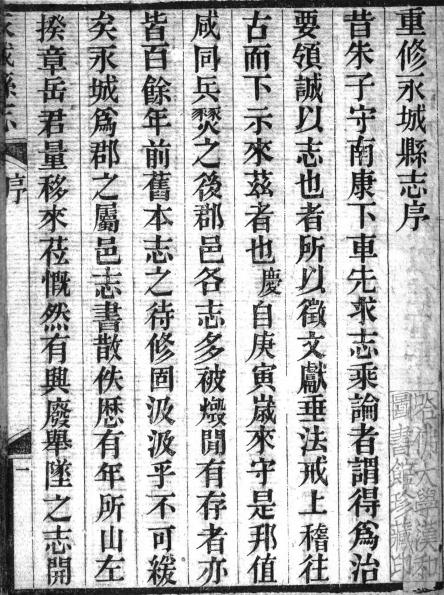 重修永城縣志序
昔朱子守南康下車先求志乘論者謂得為治
要領誠以志也者所以徵文獻垂法戒上稽往
古而下示來茲者也慶自庚寅歲來守是邦值
咸同兵燹之後郡邑各志多被燬聞有存者亦
皆百餘年前舊本志之待修固汲汲乎不可緩
矣永城爲郡之屬邑志書散佚歷有年所山左
揆章岳君量移來莅慨然有興廢舉墜之志開
永城縣志
序
一
哈佛大學漢和
圖書館珍藏印